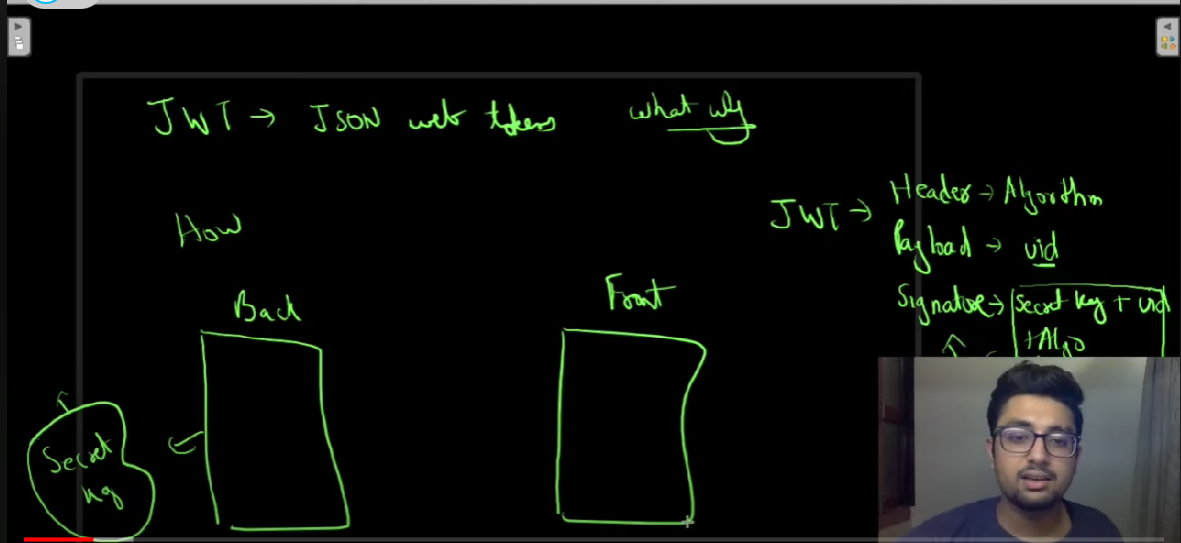 JWT → JSON web tokens what why
How
JWT → Header → Algorithm
Payload → uid
Signature → Secret key + uid
+ Algo
Back
Front
Secret
key